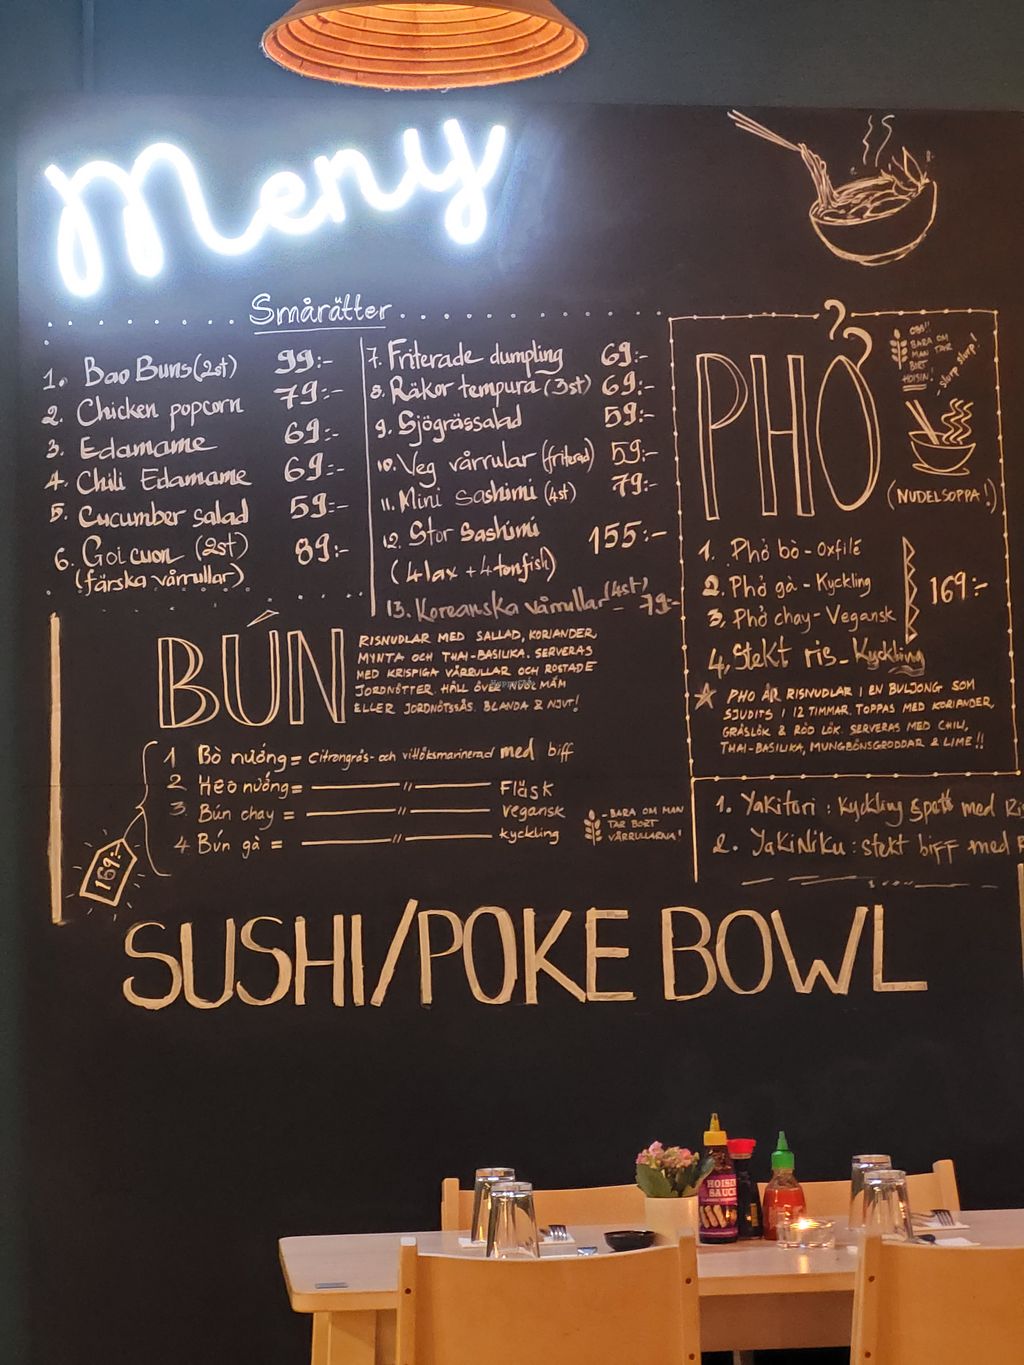 Meny
Smårätter
1. Bao Buns (2st) 99:-
2. Chicken popcorn 79:-
3. Edamame 69:-
4. Chili Edamame 69:-
5. Cucumber salad 59:-
6. Goi cuon (2st) 89:-
(färska vårrullar)
7. Friterade dumpling 69:-
8. Räkor tempura (3st) 69:-
9. Sjögrässalad 59:-
10. Veg vårrular (friterad) 59:-
11. Mini Sashimi (4st) 79:-
12. Stor Sashimi 155:-
(4 lax + 4 tonfish)
13. Koreanska vårrullar (4st) - 79:-
PHỞ
OBS!!
BARA OM
MAN TAR
BORT
HOISIN!
slurp slurp!
(NUDELSOPPA!)
1. Phở bò - Oxfilé
2. Phở gà - Kyckling
3. Phở chay - Vegansk
169:-
4. Stekt ris - Kyckling
PHO ÄR RISNUDLAR I EN BULJONG SOM
SJUDITS I 12 TIMMAR. TOPPAS MED KORIANDER,
GRÄSLÖK & RÖD LÖK. SERVERAS MED CHILI,
THAI-BASILIKA, MUNGBÖNSGRODDAR & LIME!!
BÚN
RISNUDLAR MED SALLAD, KORIANDER,
MYNTA OCH THAI-BASILIKA. SERVERAS
MED KRISPIGA VÅRRULLAR OCH ROSTADE
JORDNÖTTER. HÄLL ÖVER NUOC MẮM
ELLER JORDNÖTSSÅS. BLANDA & NJUT!
1 Bò nướng = Citrongräs- och vitlöksmarinerad med biff
2 Heo nướng = —— 〃 —— Fläsk
3 Bún chay = —— 〃 —— vegansk
4 Bún gà = —— 〃 —— kyckling
169:-
- BARA OM MAN
TAR BORT
VÅRRULLARNA!
1. Yakitori : Kyckling spett med
2. YakiNiku : stekt biff med
SUSHI/POKE BOWL
HOISIN
SAUCE